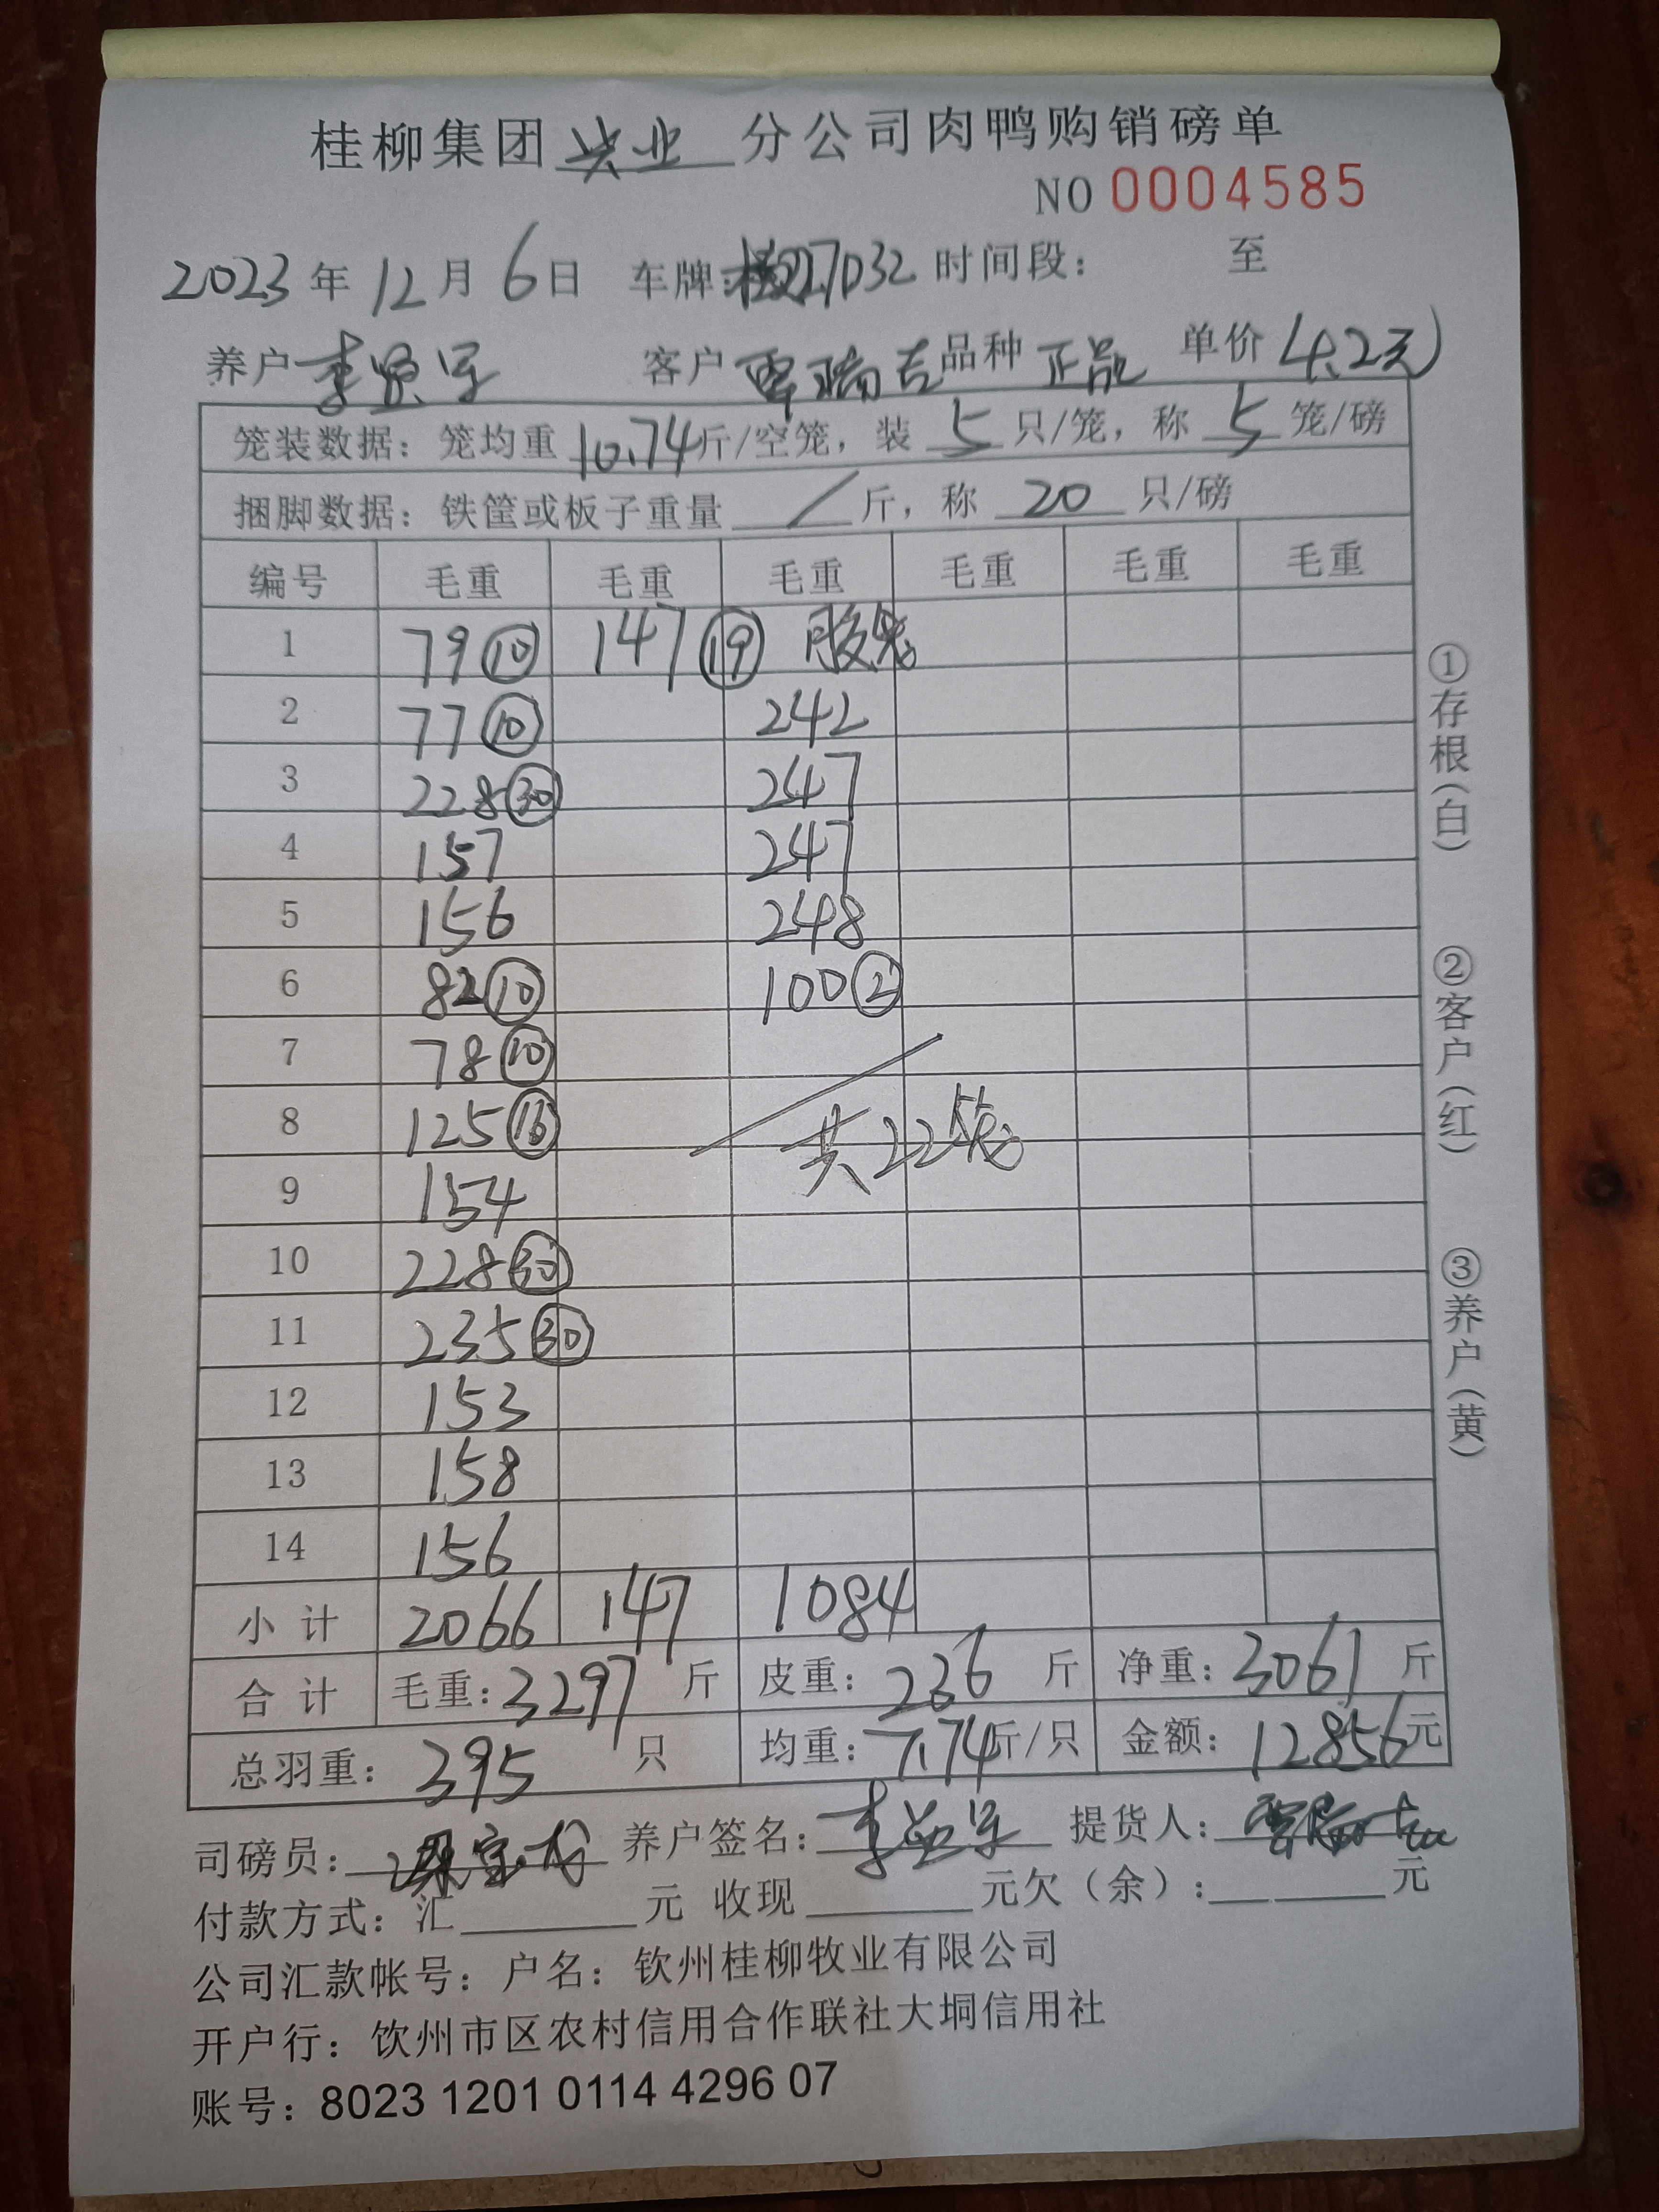 桂柳集团 兴业 分公司肉鸭购销磅单
NO 0004585
2023 年 12 月 6 日 车牌: 27032 时间段: 至
养户 李 宇 客户 覃瑞吉 品种 正品 单价 (4.2元)
笼装数据: 笼均重 10.74 斤/空笼, 装 5 只/笼, 称 5 笼/磅
捆脚数据: 铁筐或板子重量 / 斤, 称 20 只/磅
编号 毛重 毛重 毛重 毛重 毛重 毛重
1 79 ⑩ 147 ⑲ 胶笼
2 77 ⑩ 242
3 228 ㉚ 247
4 157 247
5 156 248
6 82 ⑩ 100 ②
7 78 ⑩
8 125 ⑯ 共22笼
9 154
10 228 ㉚
11 235 ㉚
12 153
13 158
14 156
小计 2066 147 1084
合计 毛重: 3297 斤 皮重: 236 斤 净重: 3061 斤
总羽重: 395 只 均重: 7.74 斤/只 金额: 12856 元
司磅员: 养户签名: 李 宇 提货人: 覃瑞吉
付款方式: 汇 元 收现 元欠(余): 元
公司汇款帐号: 户名: 钦州桂柳牧业有限公司
开户行: 钦州市区农村信用合作联社大垌信用社
账号: 8023 1201 0114 4296 07
①存根(白)
②客户(红)
③养户(黄)